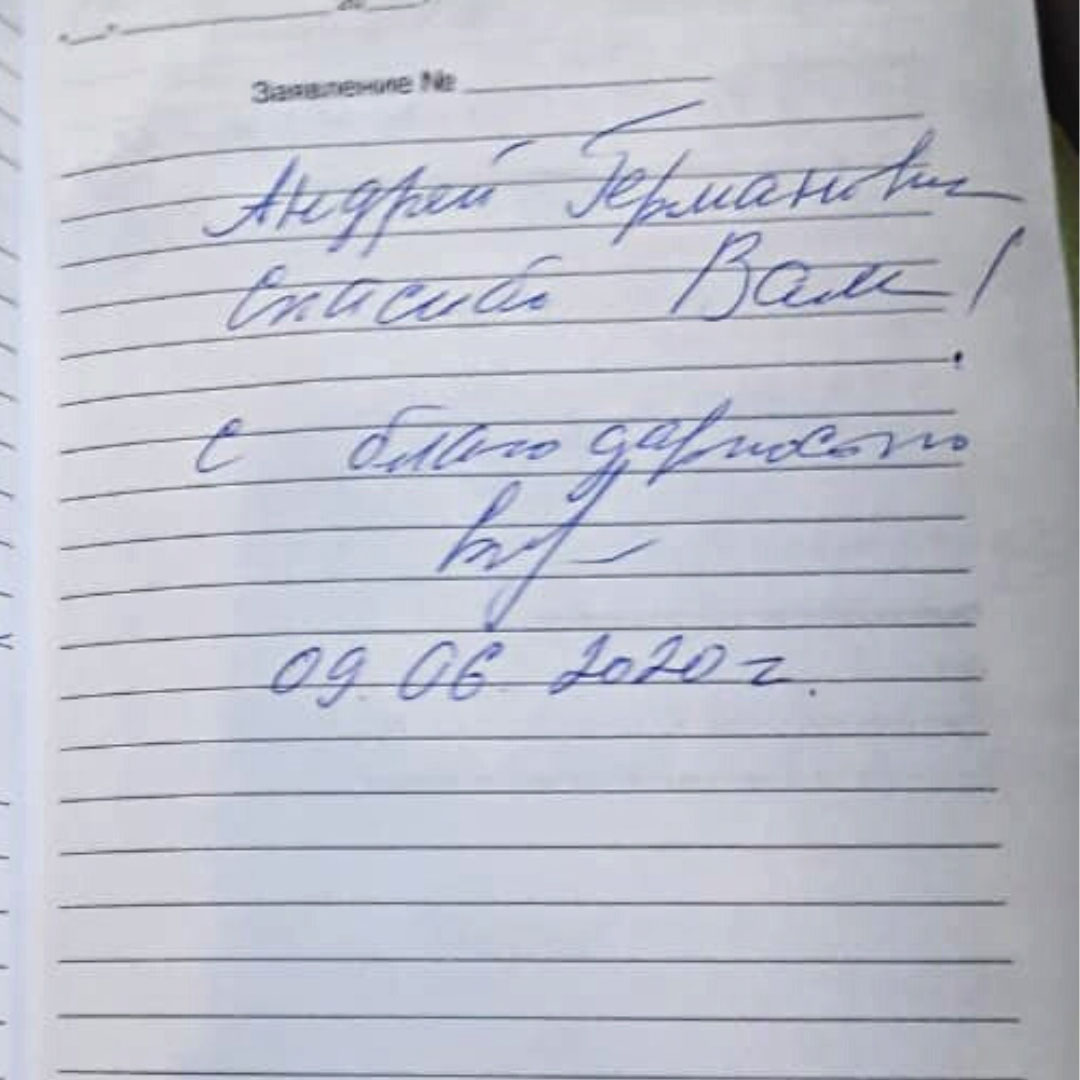 Заявление №
Андрей Германович
Спасибо Вам!
С благодарностью
09.06.2020г.